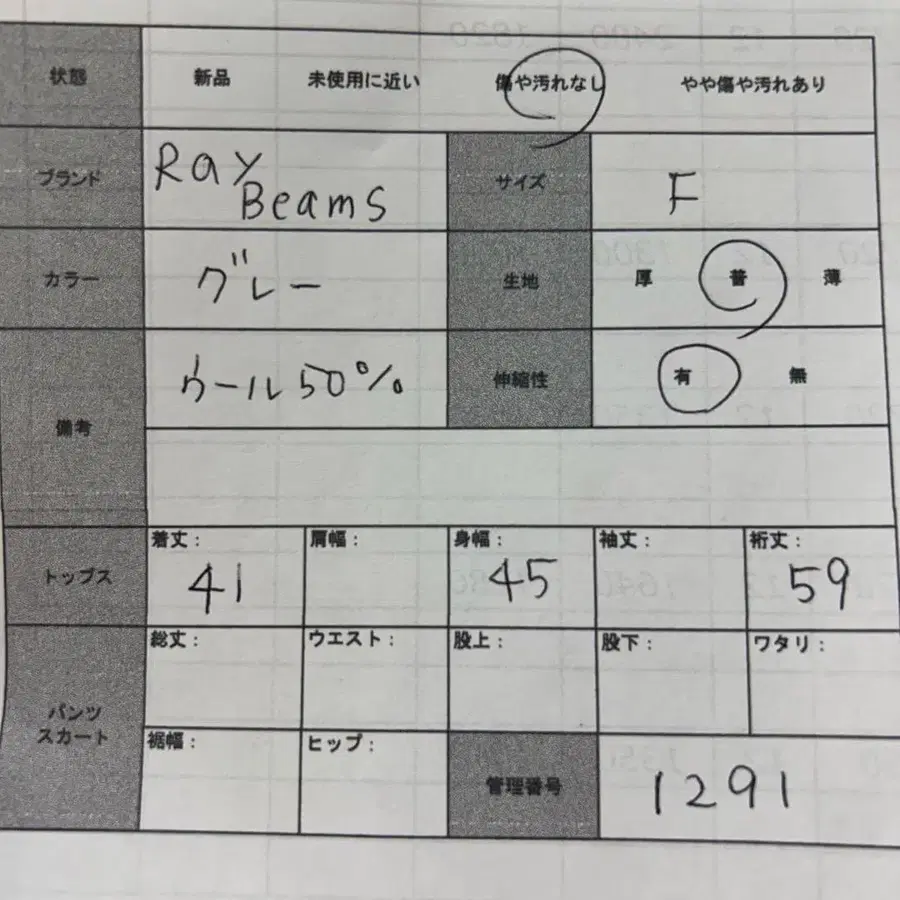 状態 新品 未使用に近い 傷や汚れなし やや傷や汚れあり
ブランド Ray Beams サイズ F
カラー グレー 生地 厚 普 薄
備考 ウール50% 伸縮性 有 無
トップス 着丈: 41 肩幅: 身幅: 45 袖丈: 裄丈: 59
パンツ スカート 総丈: ウエスト: 股上: 股下: ワタリ:
裾幅: ヒップ: 管理番号 1291